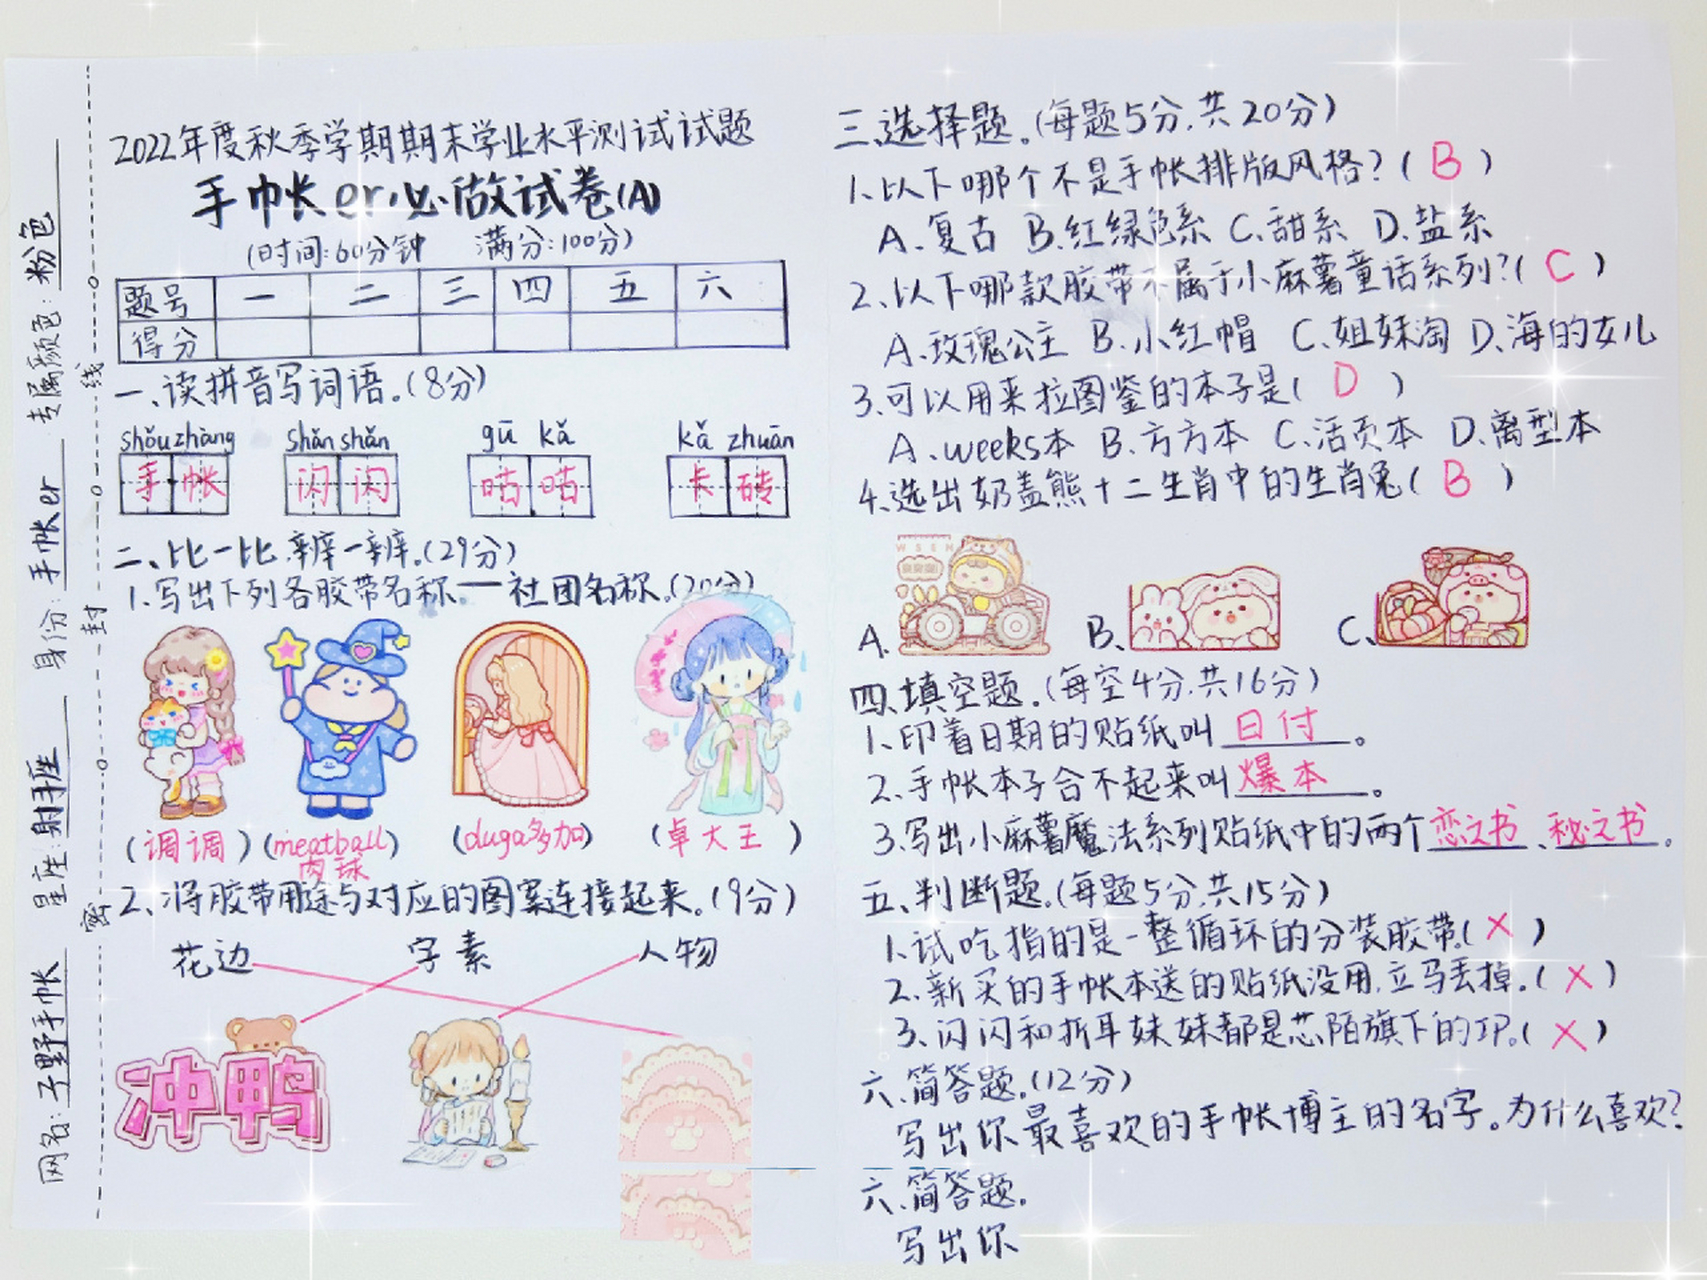 网名:子野手帐 星座:射手座 身份:手帐er 专属颜色:粉色
密 封 线
2022年度秋季学期期末学业水平测试试题
手帐er必做试卷(A)
(时间:60分钟 满分:100分)
题号 一 二 三 四 五 六
得分
一、读拼音写词语。(8分)
shǒu zhàng shǎn shǎn gū kǎ kǎ zhuān
手帐 闪闪 咕咭 卡砖
二、比一比,辨一辨。(29分)
1.写出下列各胶带名称——社团名称。(20分)
(调调) (meatball) (duga多加) (卓大王)
肉球
2、将胶带用途与对应的图案连接起来。(9分)
花边 字素 人物
冲鸭
三、选择题。(每题5分,共20分)
1.以下哪个不是手帐排版风格?(B)
A.复古 B.红绿色系 C.甜系 D.盐系
2、以下哪款胶带不属于小麻薯童话系列?(C)
A.玫瑰公主 B.小红帽 C.姐妹淘 D、海的女儿
3.可以用来拉图鉴的本子是(D)
A.weeks本 B.方方本 C.活页本 D.离型本
4.选出奶盖熊十二生肖中的生肖兔(B)
A. B、 C、
四、填空题。(每空4分,共16分)
1、印着日期的贴纸叫日付。
2、手帐本子合不起来叫爆本。
3、写出小麻薯魔法系列贴纸中的两个恋之书、秘之书。
五、判断题。(每题5分,共15分)
1.试吃指的是一整循环的分装胶带。(×)
2、新买的手帐本送的贴纸没用,立马丢掉。(×)
3、闪闪和折耳妹妹都是芯陌旗下的IP。(×)
六、简答题。(12分)
写出你最喜欢的手帐博主的名字。为什么喜欢?
六、简答题。
写出你